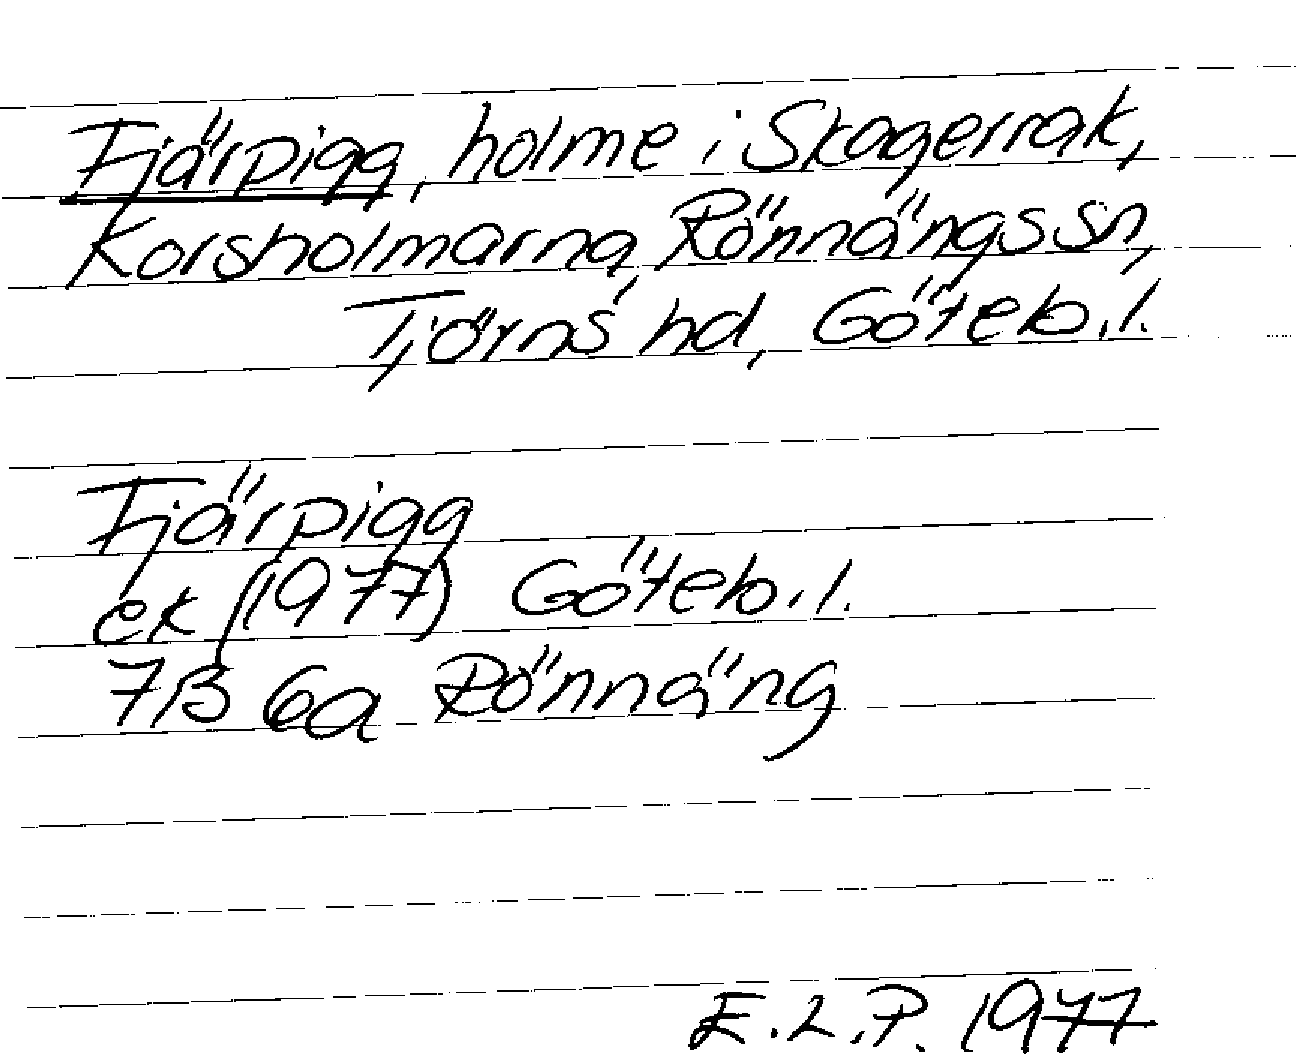 Fjärpigg, holme i Skagerrak,
Korsholmarna, Rönnängs sn,
Tjörns hd, Göteb. l.
Fjärpigg
ek (1977) Göteb. l.
7B 6a Rönnäng
E.L.P. 1977